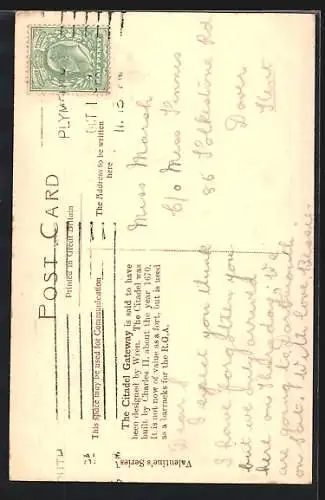 POST CARD
Printed in Great Britain
This space may be used for Communication
The Address to be written
here
PLYMOUTH
OCT 1
11.15 AM
The Citadel Gateway is said to have
been designed by Wren. The Citadel was
built by Charles II. about the year 1670.
It is not now of value as a fort, but is used
as a barracks for the R.G.A.
Valentine's Series
Miss Marsh
C/o Miss Finnis
86 Folkestone Rd
Dover
Kent
I expect you think
I have forgotten you.
but we arrived
here on Tuesday. We
are
on Sat.
love, Bessie.